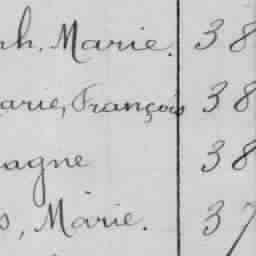 ph. Marie. 38
arie, François 38
agne 38
s, Marie. 37